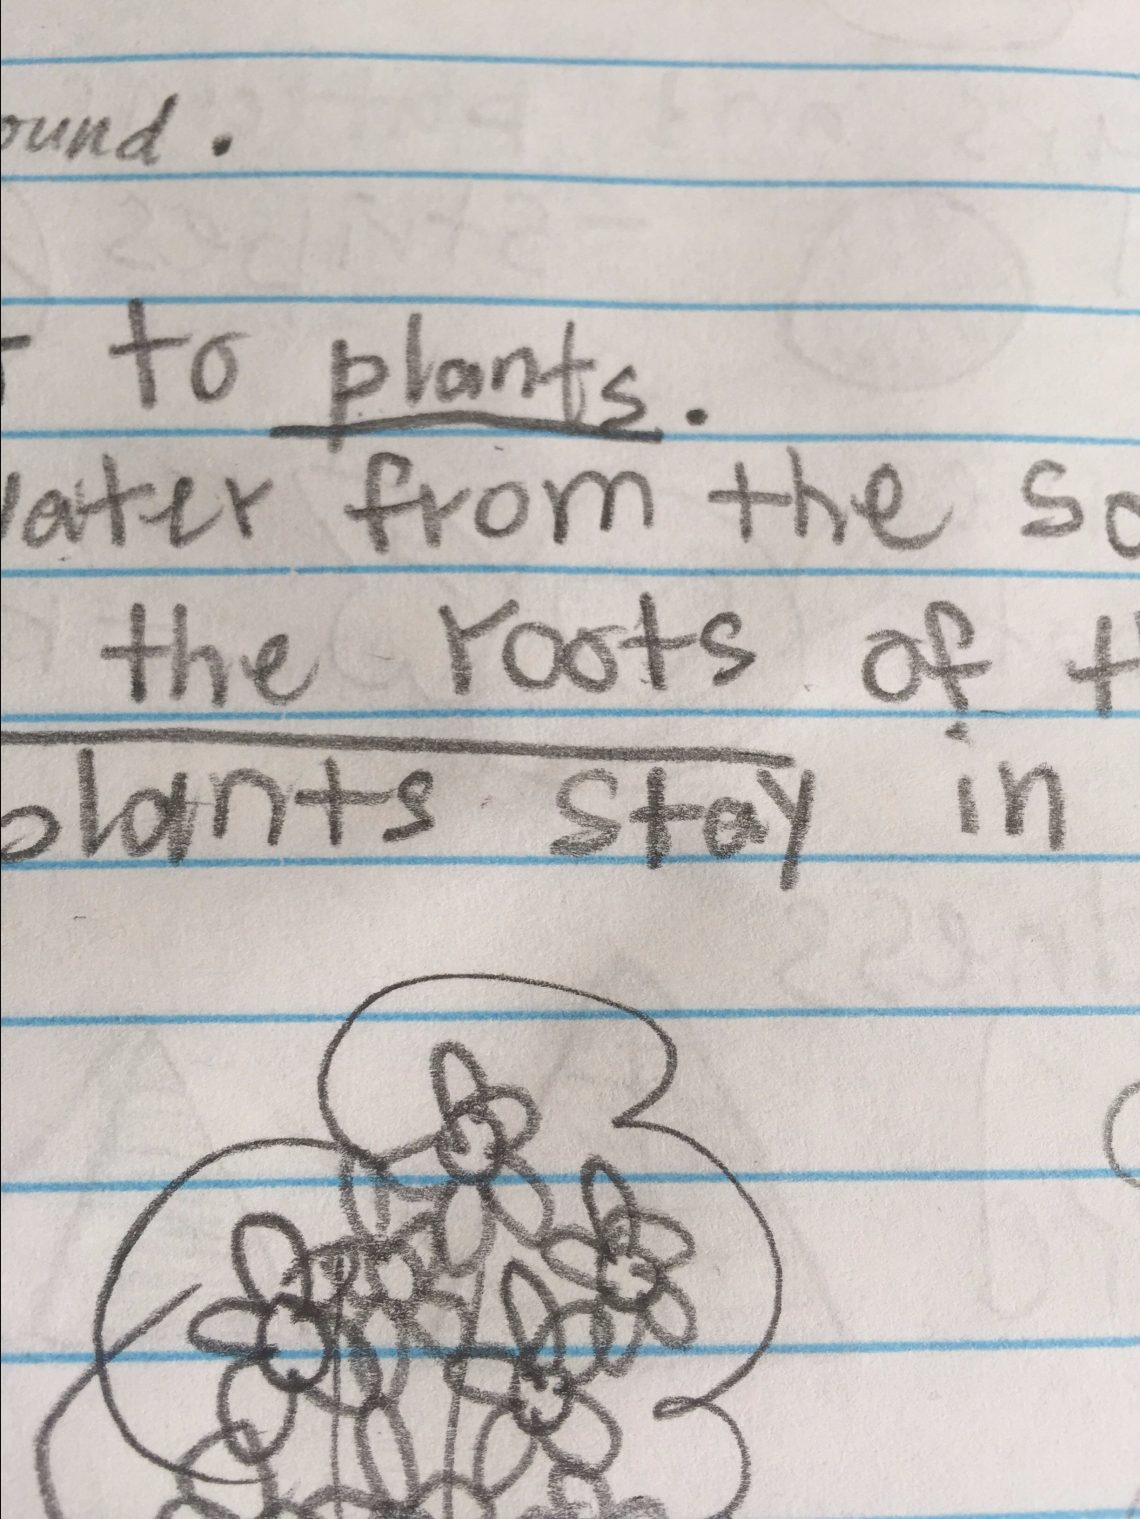 ound.
to plants.
water from the so
the roots of th
plants stay in